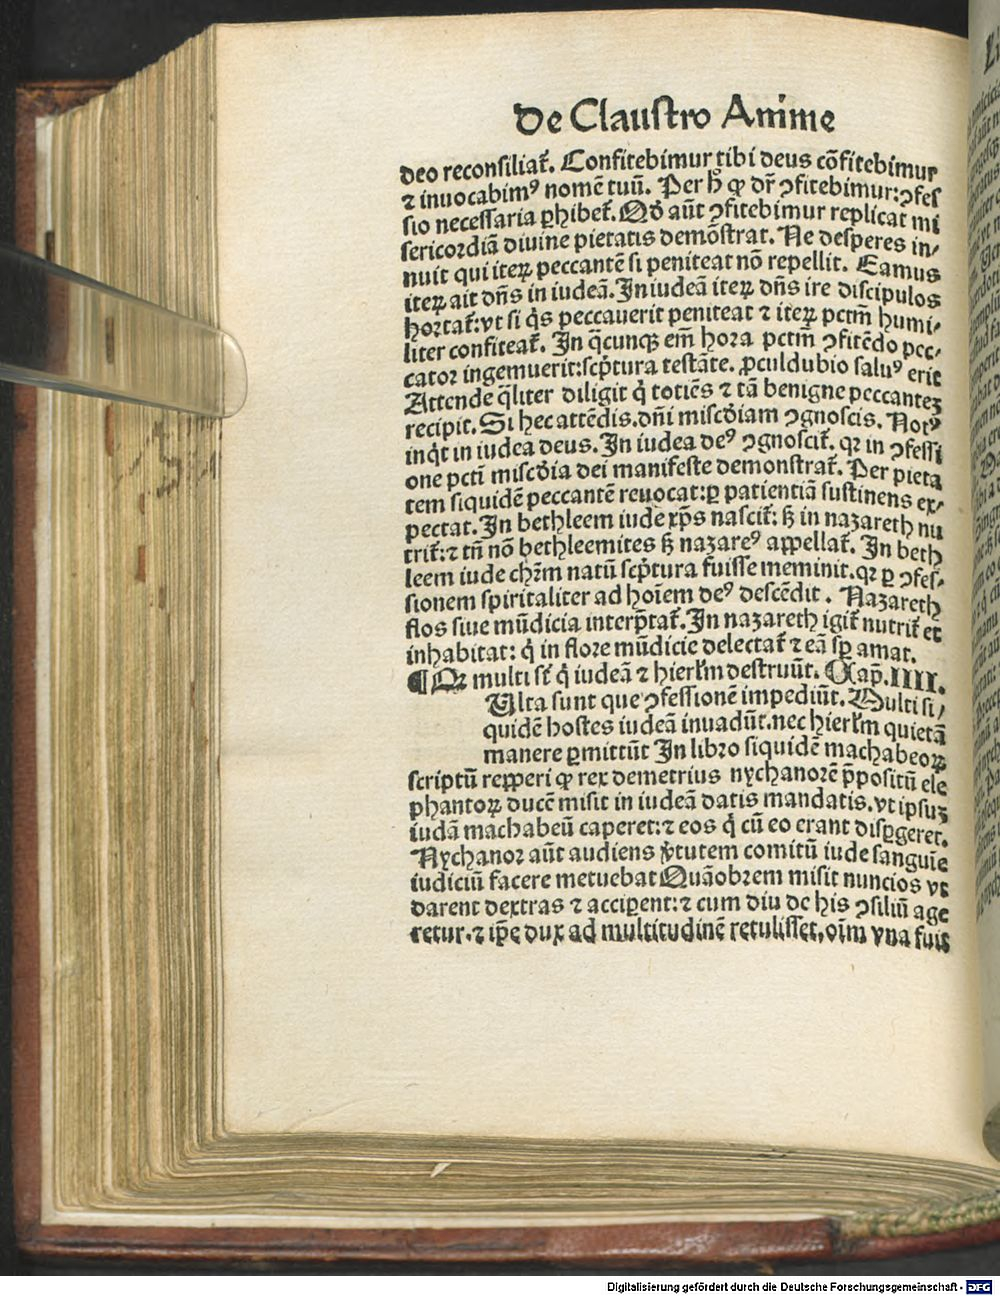 De Claustro Anime
deo reconsiliat᷑. Confitebimur tibi deus cōfitebimur
⁊ inuocabimꝰ nomē tuū. Per hͦ ꝙ dr̄ ꝯfitebimur:ꝯfes
sio necessaria ꝑhibet᷑. Qđ aūt ꝯfitebimur replicat mi
sericordiā diuine pietatis demōstrat. Ne desperes in⸗
nuit qui iteꝝ peccantē si peniteat nō repellit. Eamus
iteꝝ ait dn̄s in iudeā. In iudeā iteꝝ dn̄s ire discipulos
hortat᷑:vt si q̇s peccauerit peniteat ⁊ iteꝝ pctm̄ humi⸗
liter confiteat᷑. In q̄cunqꝫ em̄ hora pctm̄ ꝯfitēdo pec⸗
cator ingemuerit:scp̄tura testāte. ꝓculdubio saluꝰ erit
Attende q̄liter diligit q̇ totiēs ⁊ tā benigne peccantes
recipit. Si hec attēdis. dn̄i miscďiam ꝯgnoscis. Notꝰ
inq̇t in iudea deus. In iudea deꝰ ꝯgnoscit᷑. qꝛ in ꝯfessi
one pcti̅ miscďia dei manifeste demonstrat᷑. Per pieta
tem siquidē peccantē reuocat:ꝑ patientiā sustinens ex⸗
pectat. In bethleem iude xp̄s nascit᷑: sꝫ in nazareth nu
trit᷑:⁊ tn̄ nō bethleemites sꝫ nazareꝰ appellat᷑. In beth
leem iude chr̄m natū scp̄tura fuisse meminit. qꝛ ꝑ ꝯfes⸗
sionem spiritaliter ad hoīem deꝰ descēdit. Nazareth
flos siue mūdicia interp̄tat᷑. In nazareth igit᷑ nutrit᷑ et
inhabitat: q̇ in flore mūdicie delectat᷑ ⁊ eā sꝑ amat.
¶ Qꝛ multi st̄ q̇ iudeā ⁊ hierlm̄ destruūt. Cap̄. IIII.
Ulta sunt que ꝯfessionē impediūt. Multi si⸗
quidē hostes iudeā inuadūt. nec hierlm̄ quietā
manere ꝑmittūt In libro siquidē machabeoꝝ
scriptū repperi ꝙ rex demetrius nychanorē p̄positū ele
phantoꝝ ducē misit in iudeā datis mandatis. vt ipsuꝫ
iudā machabeū caperet:⁊ eos q̇ cū eo erant disꝑgeret.
Nychanor aūt audiens v̇tutem comitū iude sanguīe
iudiciū facere metuebat Quāobrem misit nuncios vt
darent dextras ⁊ acciꝑent:⁊ cum diu de his ꝯsiliū age
retur. ⁊ ip̄e dux ad multitudinē retulisset, oīm vna fuis
Digitalisierung gefördert durch die Deutsche Forschungsgemeinschaft - DFG